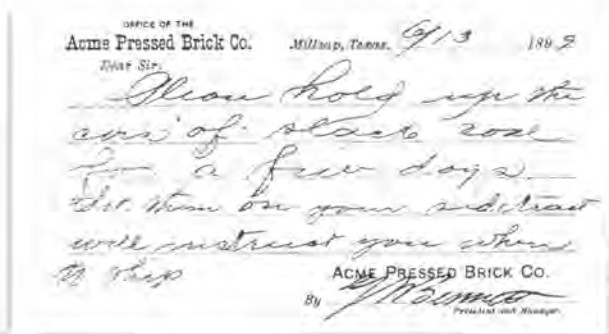 OFFICE OF THE
Acme Pressed Brick Co.
Millsap, Texas, 6/13 1892
Dear Sir:
Please hold up the
cars of slack coal
for a few days
Set them on your sidetrack
will instruct you when
to ship
ACME PRESSED BRICK CO.
By G Bennett
President and Manager.